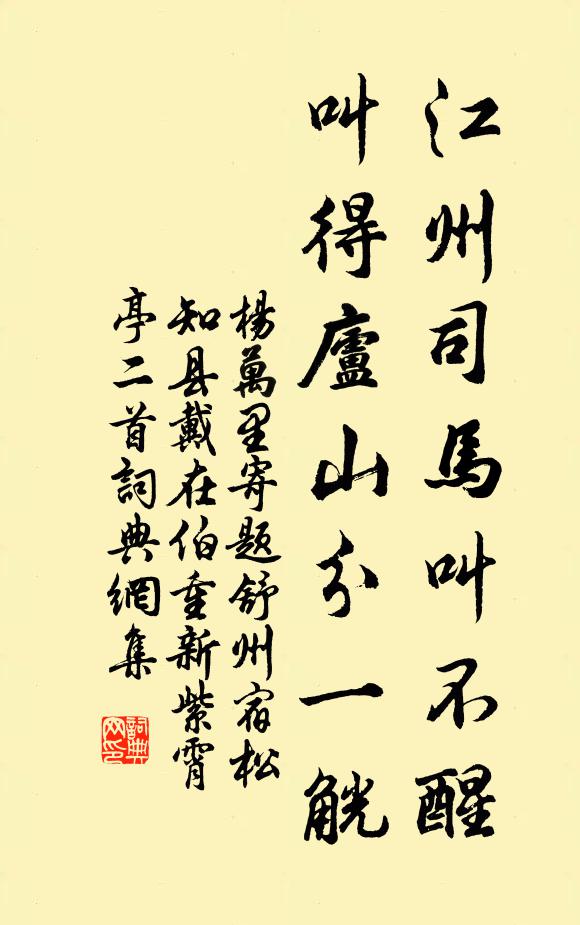 江州司馬叫不醒
叫得廬山分一觥
楊萬里寄題舒州宿松
知县戴在伯重新紫霄
亭二首詞典網集
詞典
网印